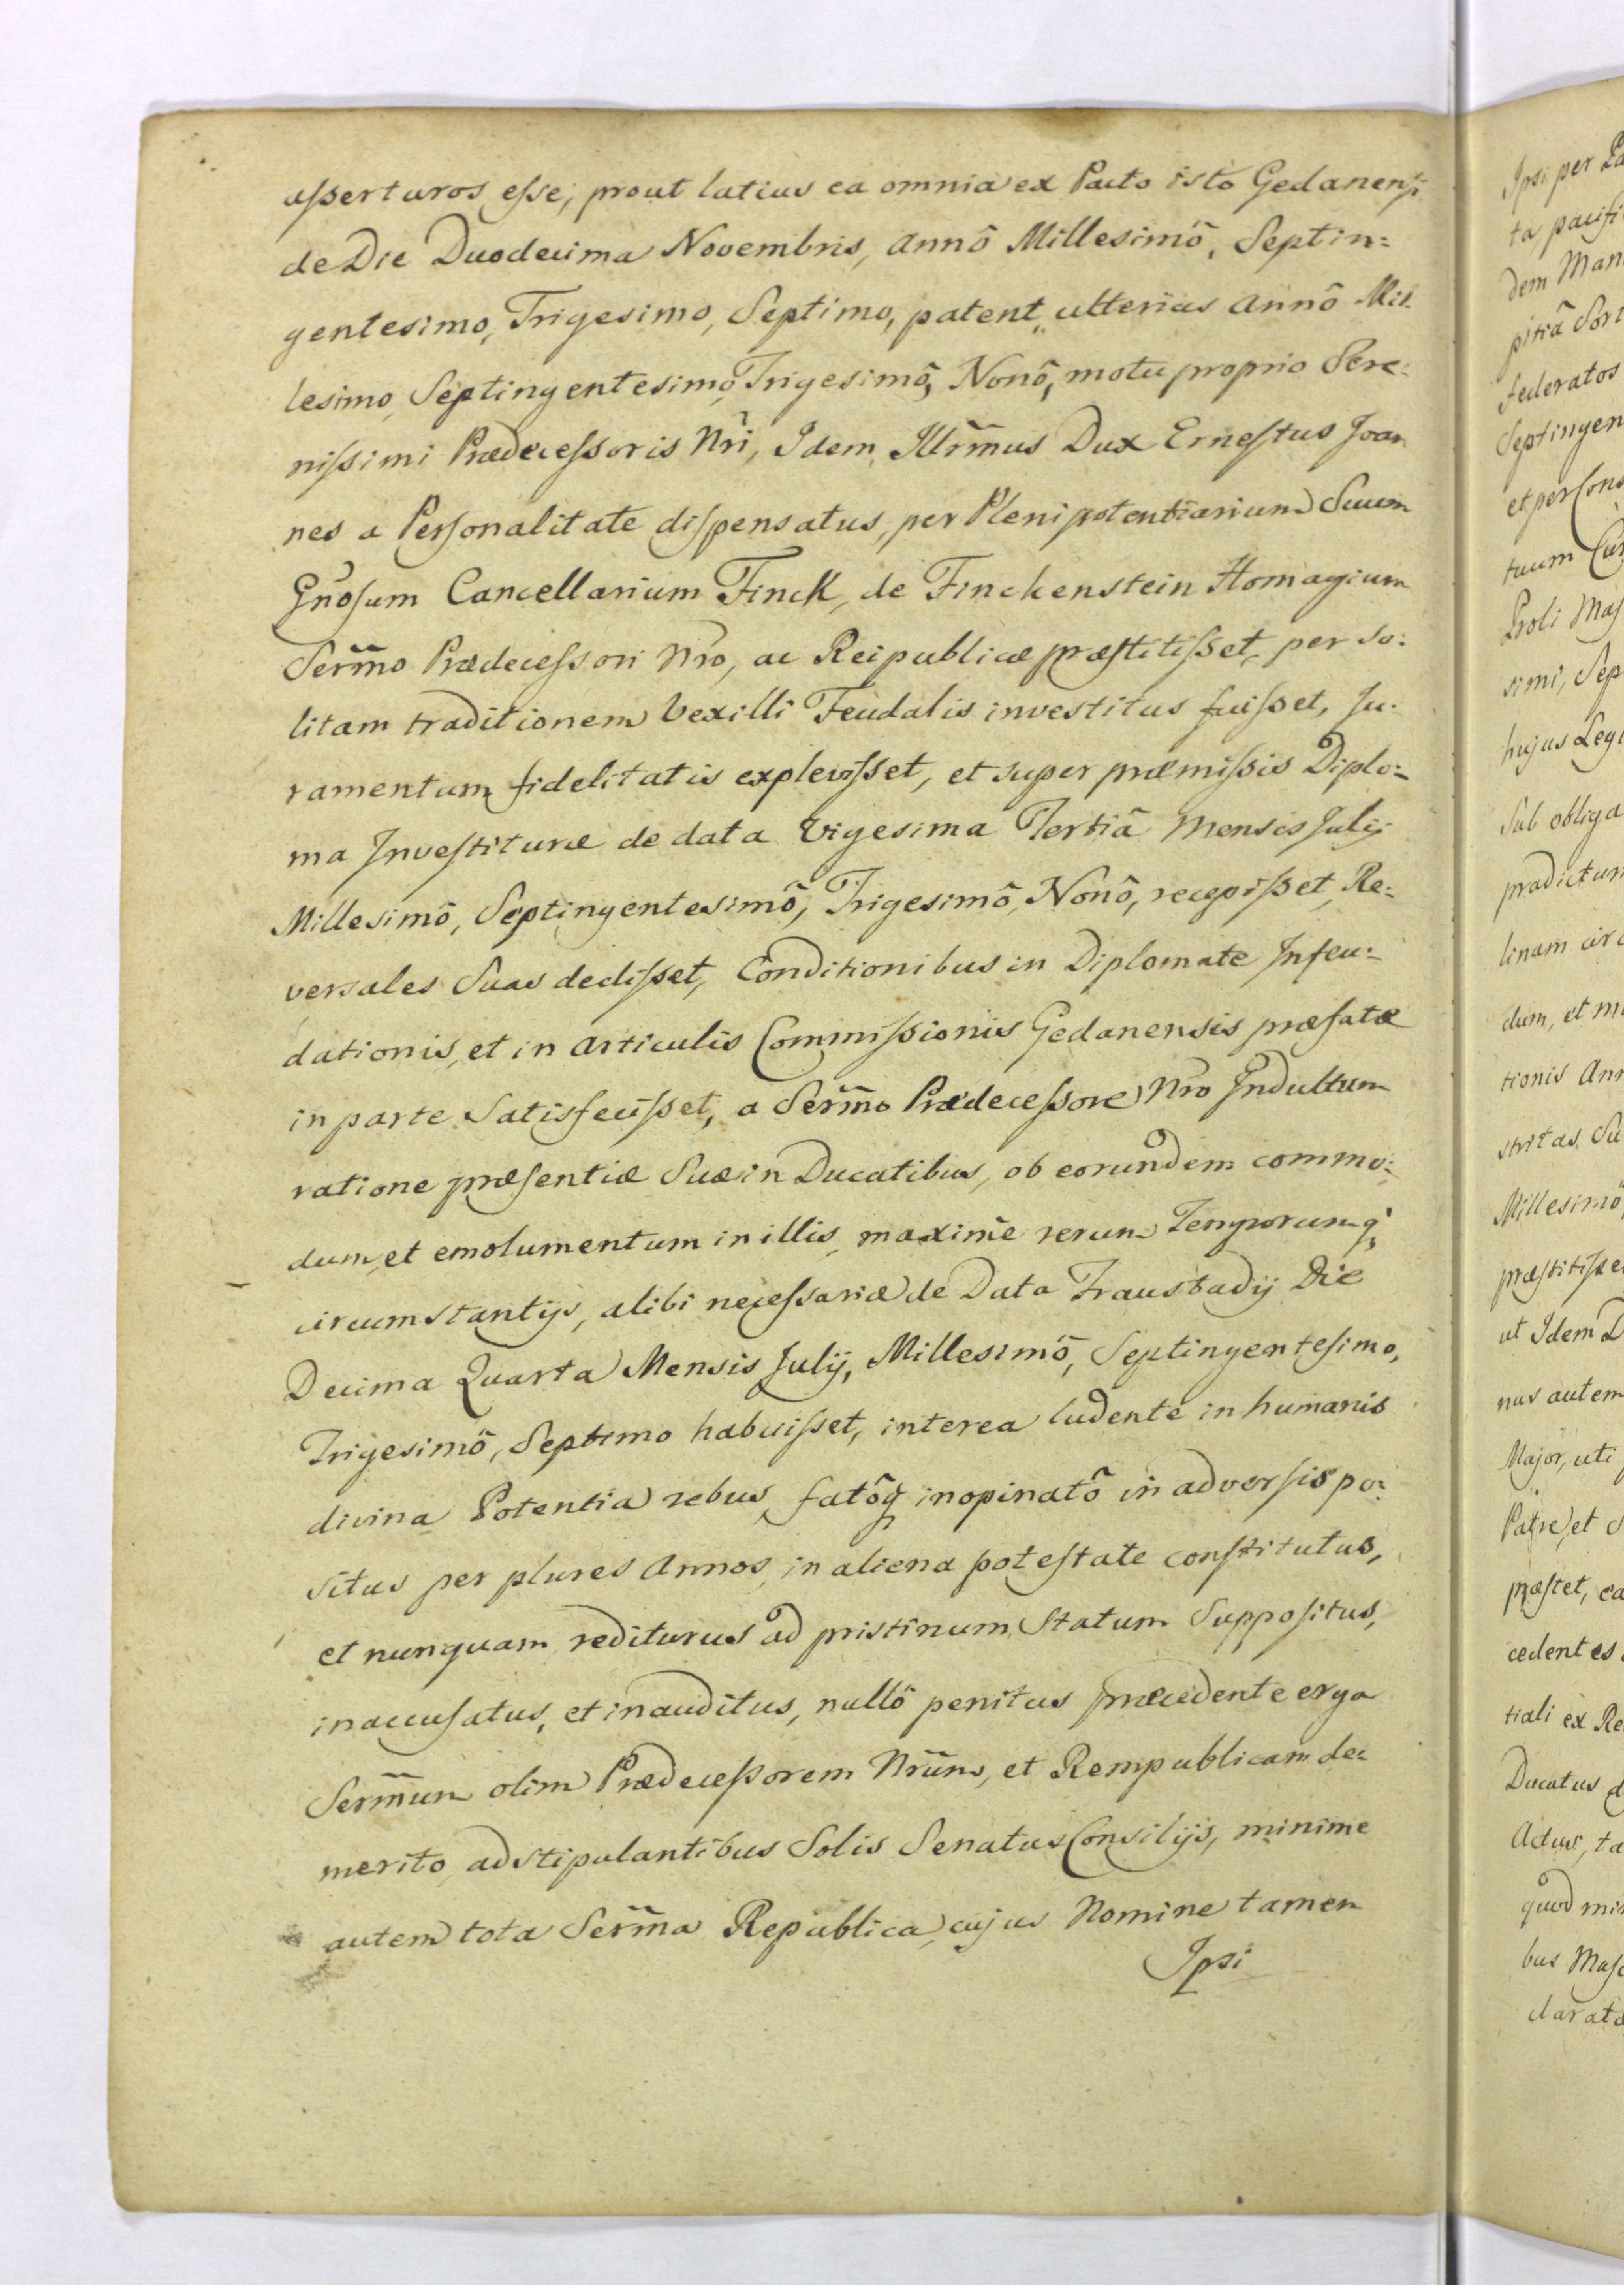 asserturos esse, prout latius ea omnia ex Pacto isto Gedanensi
de Die Duodecima Novembris, Annô Millesimô, Septin=
gentesimo, Trigesimo, Septimo, patent, ulterius Annô Mil=
lesimo, Septingentesimo, Trigesimô, Nonô, motu proprio Sere=
nissimi Prædecessoris Nr̃i, Idem Illr̃mus Dux Ernestus Joan
nes a Personalitate dispensatus, per Plenipotentiarium Suum
Gn̄osum Cancellarium Finck, de Finckenstein Homagium
Serm̃o Prædecessori Nr̃o, ac Reipublicæ præstitisset, per so=
litam traditionem Vexilli Feudalis investitus fuisset, Ju=
ramentum fidelitatis explevisset, et super præmissis Diplo=
ma Investituræ de data Vigesima Tertiâ Mensis Julij
Millesimô, Septingentesimô, Trigesimô, Nonô, recepisset, Re=
versales Suas dedisset, Conditionibus in Diplomate Infeu=
dationis, et in Articulis Commissionis Gedanensis præfatæ
in parte Satisfecisset, a Serm̃o Prædecessore Nr̃o Indultum
ratione præsentiæ Suæ in Ducatibus, ob eorundem commo=
dum, et emolumentum in illis, maxime rerum Temporumq̨
circumstantijs, alibi necessariæ de Data Fraustadij Die
Decima Quarta Mensis Julij, Millesimô, Septingentesimo,
Trigesimô, Septimo habuisset, interea ludente in humanis
divina Potentia rebus, fatôq̨ inopinatô in adversis po=
situs per plures Annos, in aliena potestate constitutus,
et nunquam rediturus ad pristinum Statum Suppositus,
inaccusatus, et inauditus, nullô penitus præcedente erga
Serm̃um olim Prædecessorem Nr̃um, et Rempublicam de=
merito, adstipulantibus Solis Senatus Consilijs, minime
autem tota Serm̃a Republica, cujus Nomine tamen
Ipsi
Ipsi per
ta, pacifi
dem Man
pitiâ
federatos
Septingen
et per Cons
tuum
Proli Mas
simi, Sep
hujus Leg
Sub obliga
prædictum
linam circ
dum, et
tionis Ann
Millesimô,
præstitisse
ut Idem D
nus autem
Major, uti
Patre, et
præstet, ea
cedentes
tiali ex Re
Ducatus
Actus, ta
quod min
bus Masc
clarato